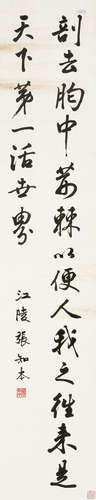 剖去胸中荊棘以便人我之往来是
天下第一活世界
江陵張知本